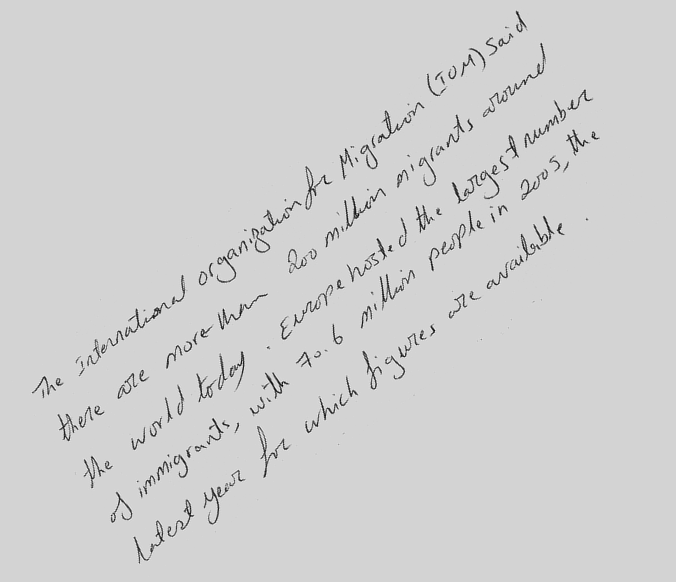 The International organization for Migration (IOM) said
there are more than 200 million migrants around
the world today. Europe hosted the largest number
of immigrants, with 70.6 million people in 2005, the
latest year for which figures are available.